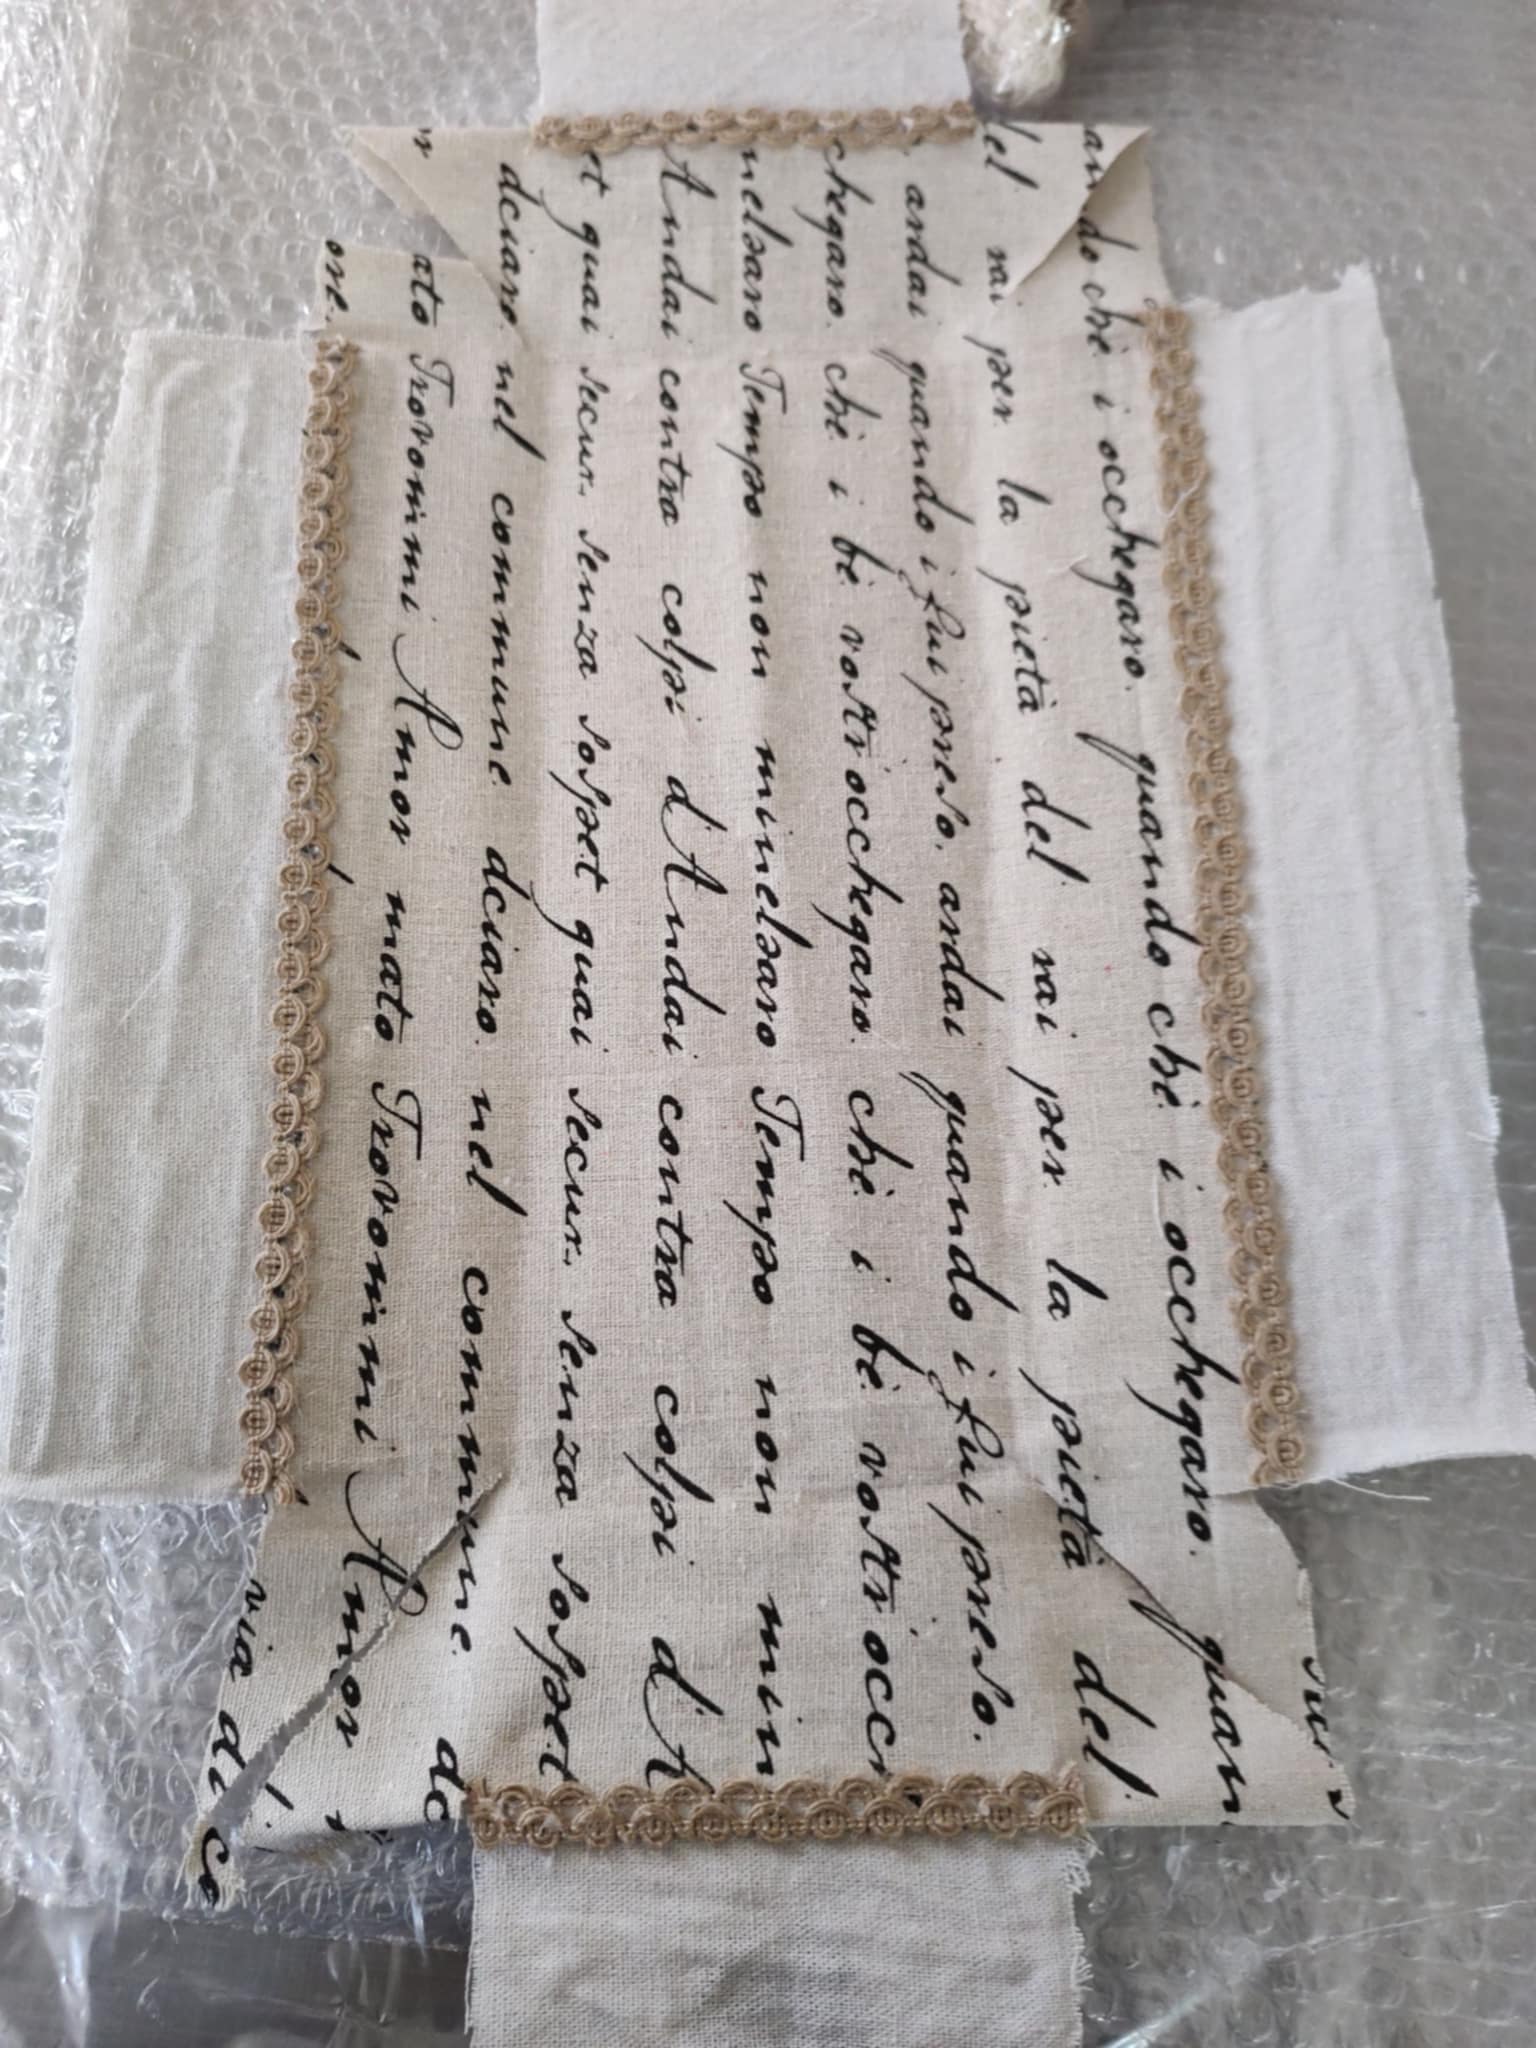 ando chè i occhegaro. quando chè i occhegaro. quan
del rai per la pietà del rai per la pietà del
ardai quando i fui preso. ardai quando i fui preso.
chegaro. chè i bè vostr'occhegaro. chè i bè vostr'occ
nelsaro Tempo non minelsaro Tempo non min
Andai contra colpi d'Andai contra colpi d'A
et guai secur. senza sospet guai secur. senza sospet
dciaro. nel commune. dciaro. nel commune. dc
ato Trovommi Amor mato Trovommi Amor
ore. via di co